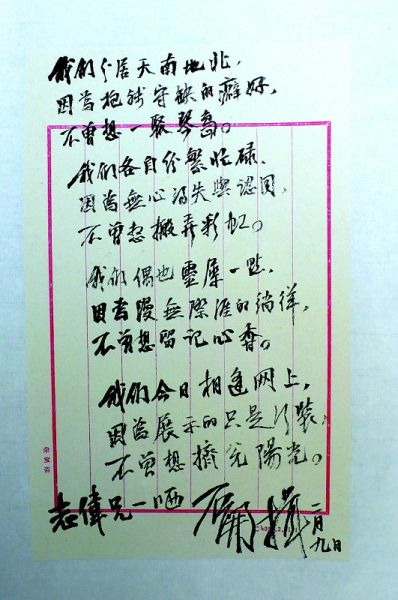 我们分居天南地北，
因為抱残守缺的癖好，
不曾想一聚琴島。
我们各自纷繁忙碌，
因為無心得失與認同，
不曾想搬弄彩虹。
我们偶也靈犀一點，
因為漫無際涯的徜徉，
不曾想留记心香。
我们今日相逢网上，
因為展示的只是行裝，
不曾想擠兑陽光。
志偉兄一哂
二月九日